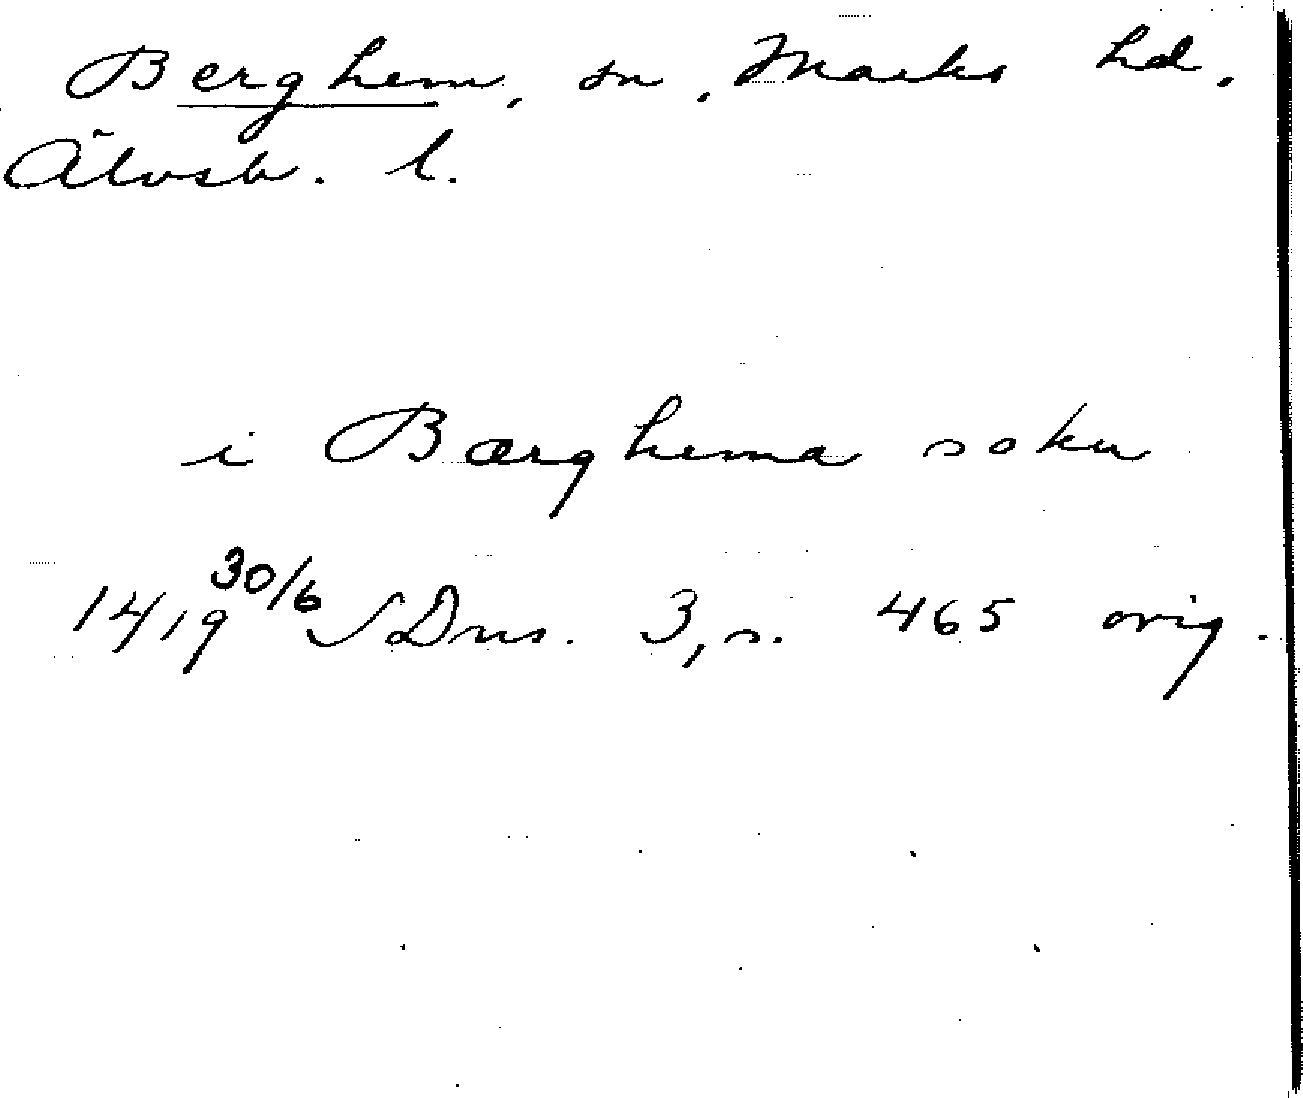 Berghem, sn, Marks hd.
Älvsb. l.
i Bærghema sokn
1419 30/6 SDns. 3, s. 465 orig.